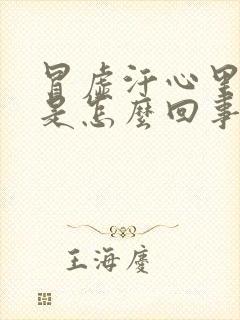 冒虚汗心里
是怎麼回事
王海慶